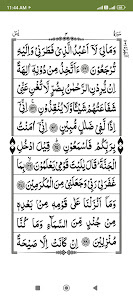 11:44 AM
وَمَالِيَ لَآ اَعْبُدُ الَّذِيْ فَطَرَنِيْ وَاِلَيْهِ
تُرْجَعُوْنَ ﴿٢٢﴾ ءَاَتَّخِذُ مِنْ دُوْنِهٖٓ اٰلِهَةً
اِنْ يُّرِدْنِ الرَّحْمٰنُ بِضُرٍّ لَّا تُغْنِ عَنِّيْ
شَفَاعَتُهُمْ شَيْـًٔا وَّلَا يُنْقِذُوْنِ ﴿٢٣﴾ اِنِّيْٓ
اِذًا لَّفِيْ ضَلٰلٍ مُّبِيْنٍ ﴿٢٤﴾ اِنِّيْٓ اٰمَنْتُ
بِرَبِّكُمْ فَاسْمَعُوْنِ ﴿٢٥﴾ قِيْلَ ادْخُلِ
الْجَنَّةَ قَالَ يٰلَيْتَ قَوْمِيْ يَعْلَمُوْنَ ﴿٢٦﴾ بِمَا
غَفَرَ لِيْ رَبِّيْ وَجَعَلَنِيْ مِنَ الْمُكْرَمِيْنَ ﴿٢٧﴾
وَمَآ اَنْزَلْنَا عَلٰى قَوْمِهٖ مِنْۢ بَعْدِهٖ
مِنْ جُنْدٍ مِّنَ السَّمَآءِ وَمَا كُنَّا
مُنْزِلِيْنَ ﴿٢٨﴾ اِنْ كَانَتْ اِلَّا صَيْحَةً